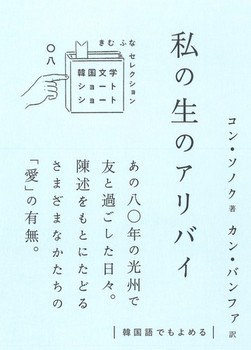 私の生のアリバイ
コン・ソノク 著 カン・バンファ 訳
きむ ふな セレクション
〇八
韓国文学
ショート
ショート
あの八〇年の光州で
友と過ごした日々。
陳述をもとにたどる
さまざまなかたちの
「愛」の有無。
韓国語でもよめる